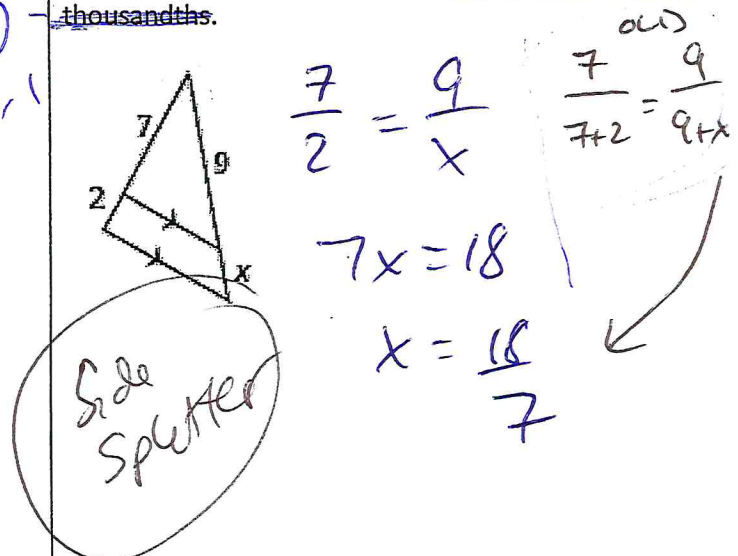 thousandths.
7
9
2
x
7/2 = 9/x
7x = 18
x = 18/7
OLD
7/7+2 = 9/9+x
Side
Splitter